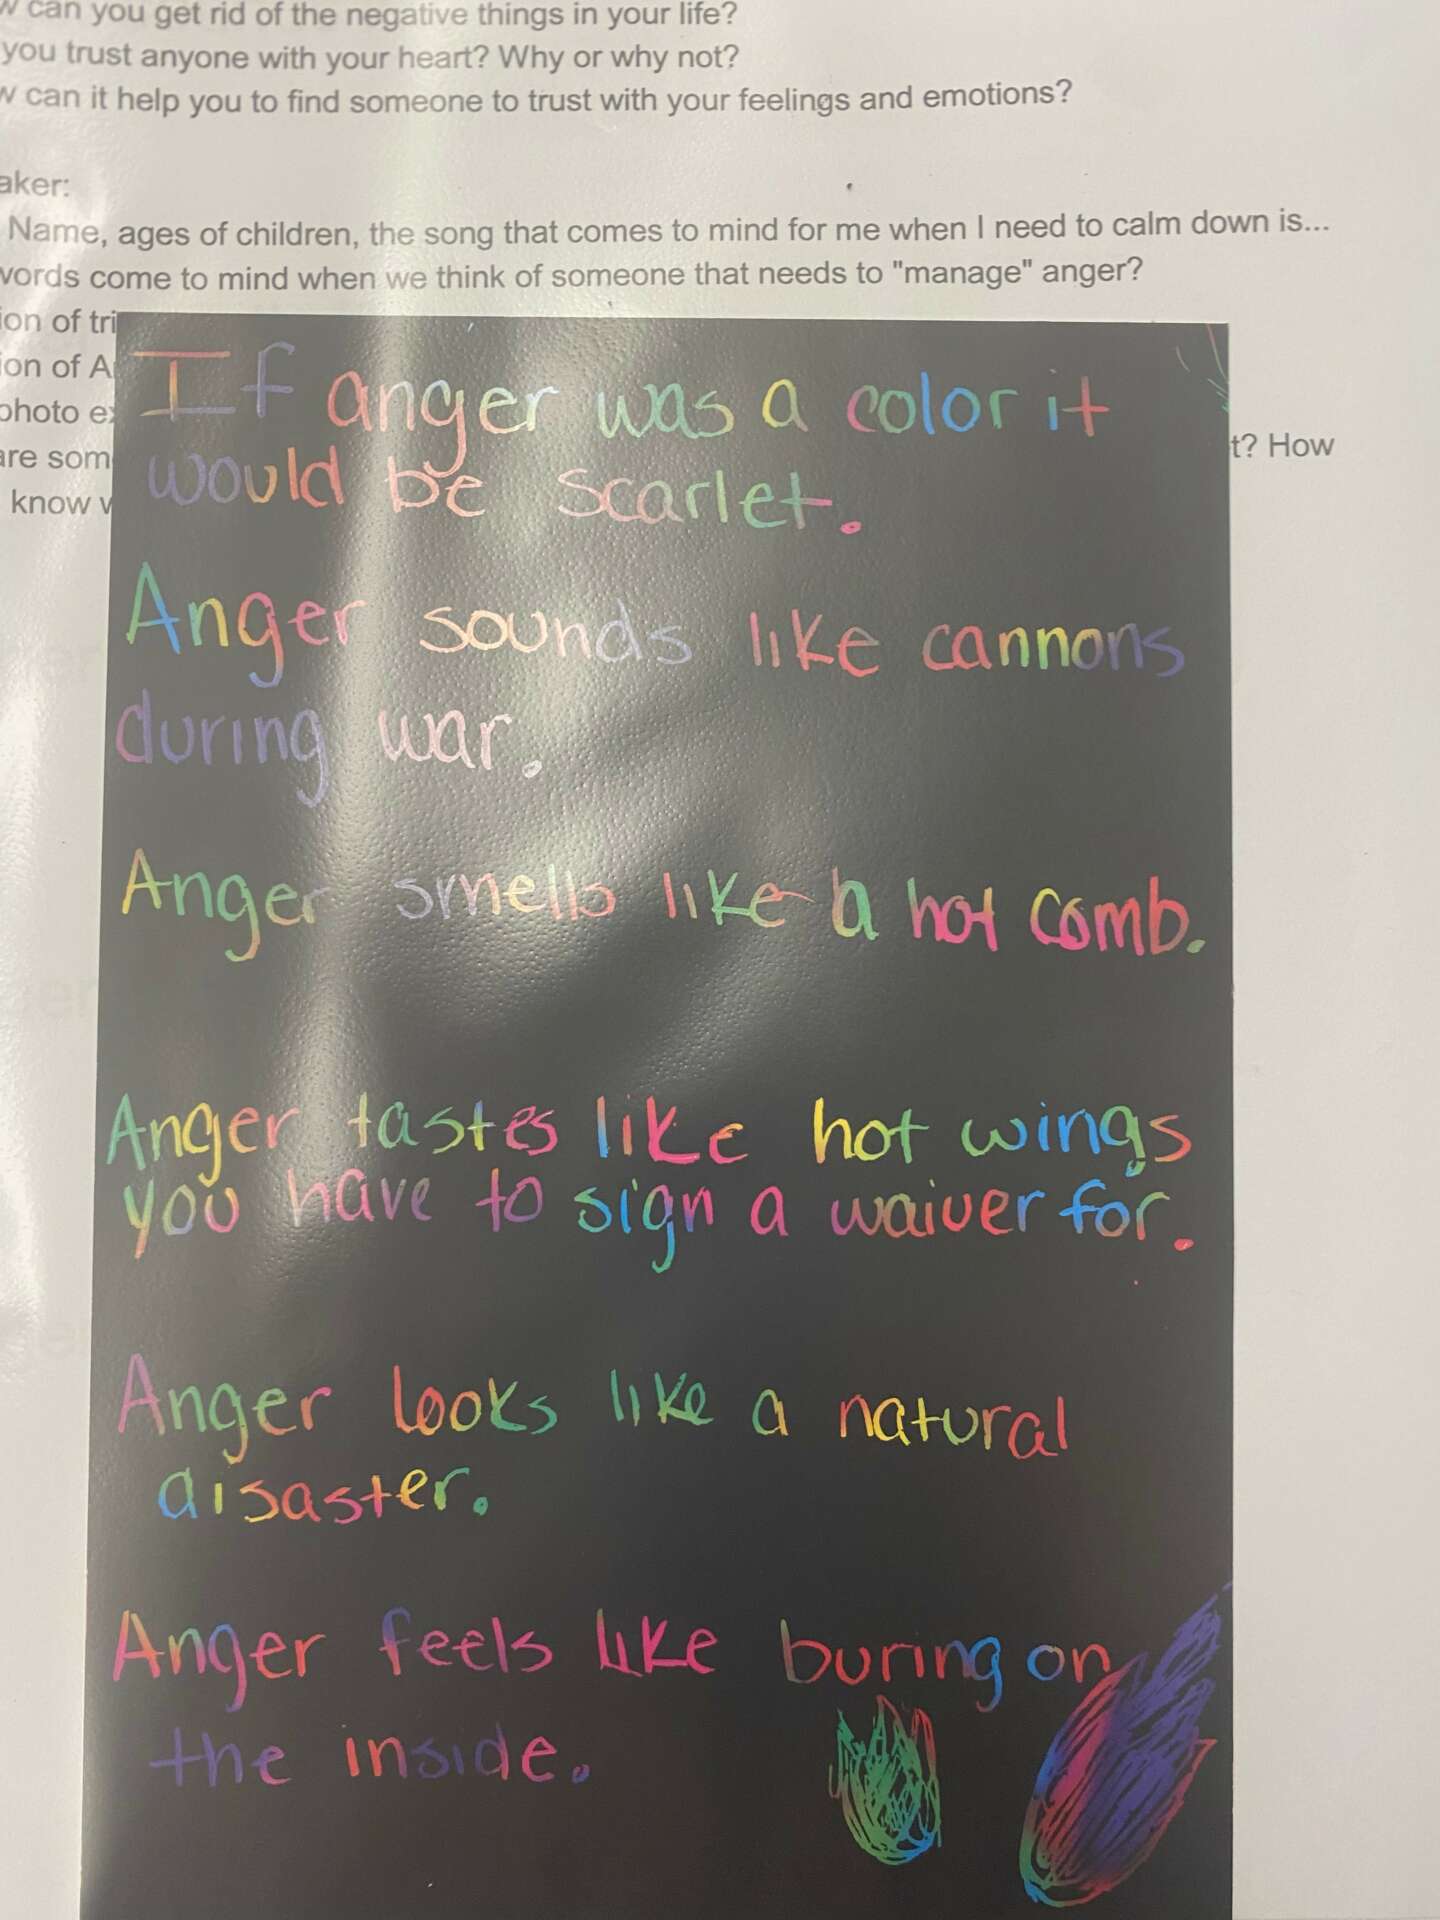 can you get rid of the negative things in your life?
you trust anyone with your heart? Why or why not?
can it help you to find someone to trust with your feelings and emotions?
aker:
Name, ages of children, the song that comes to mind for me when I need to calm down is...
words come to mind when we think of someone that needs to "manage" anger?
ion of tri
ion of A
photo e
are som t? How
know
If anger was a color it
would be scarlet.
Anger sounds like cannons
during war.
Anger smells like a hot comb.
Anger tastes like hot wings
you have to sign a waiver for.
Anger looks like a natural
disaster.
Anger feels like buring on
the inside.